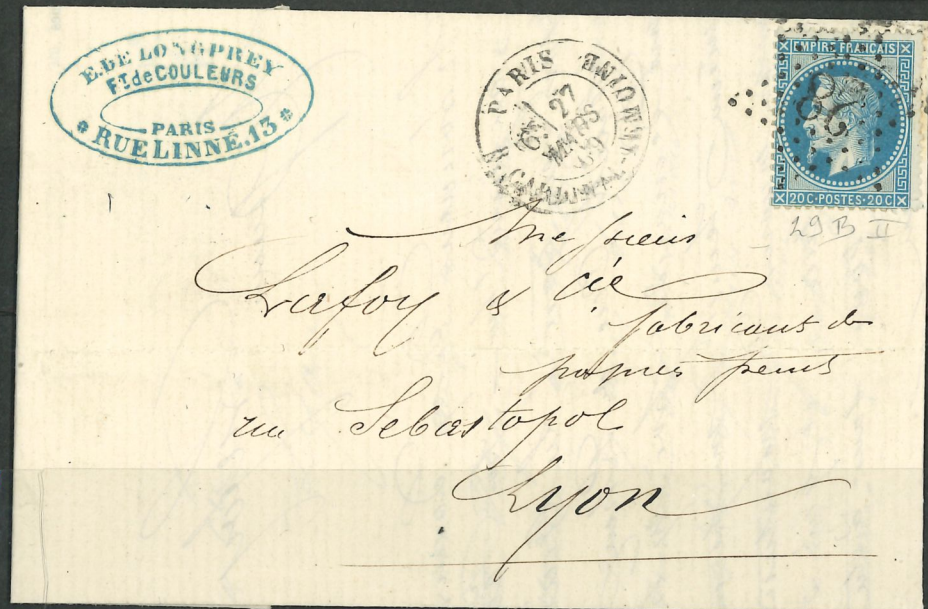 E. DE LONGPREY
Ft. de COULEURS
PARIS
RUE LINNÉ. 13
PARIS
27
MARS
R. CARDINAL-LEMOINE
EMPIRE FRANÇAIS
28
20 C · POSTES · 20 C
29 B II
Messieurs
Lafoy & cie
fabricants de
papiers peints
rue Sebastopol
Lyon